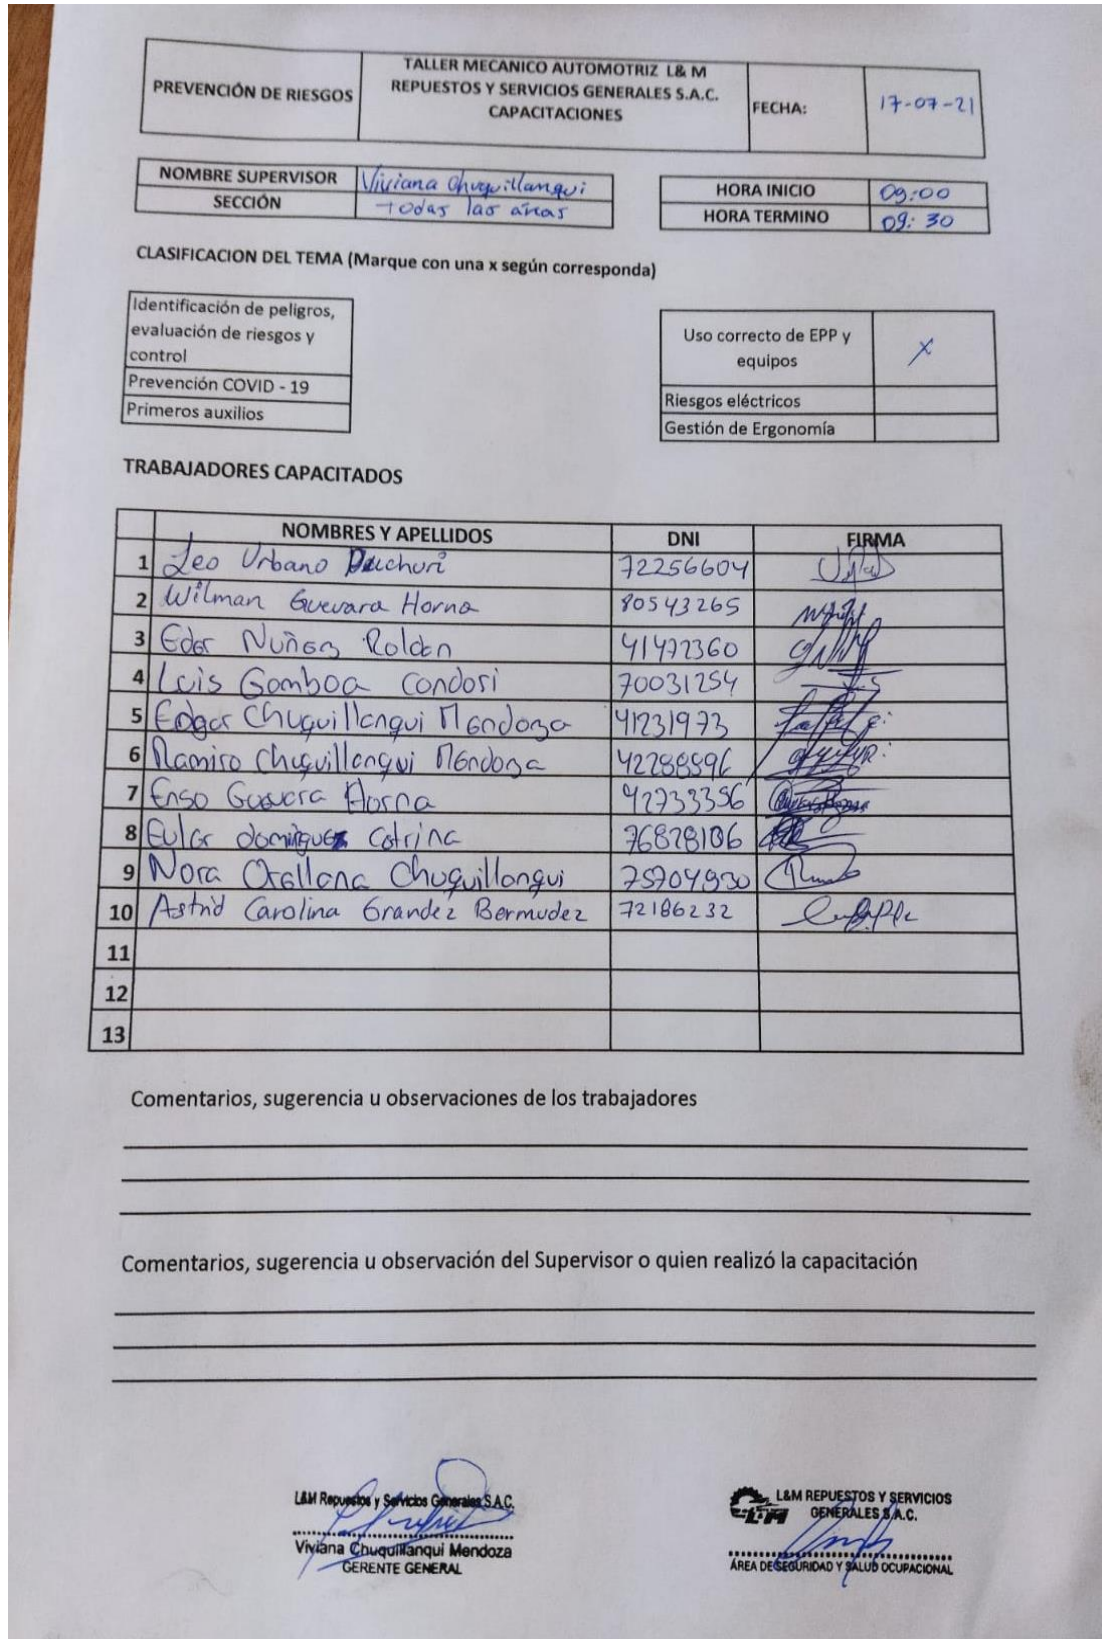 PREVENCIÓN DE RIESGOS
TALLER MECANICO AUTOMOTRIZ L& M
REPUESTOS Y SERVICIOS GENERALES S.A.C.
CAPACITACIONES
FECHA:
17-07-21
NOMBRE SUPERVISOR Viviana Chuquillanqui
SECCIÓN Todas las áreas
HORA INICIO 09:00
HORA TERMINO 09:30
CLASIFICACION DEL TEMA (Marque con una x según corresponda)
Identificación de peligros,
evaluación de riesgos y
control
Prevención COVID - 19
Primeros auxilios
Uso correcto de EPP y
equipos
x
Riesgos eléctricos
Gestión de Ergonomía
TRABAJADORES CAPACITADOS
NOMBRES Y APELLIDOS DNI FIRMA
1 Leo Urbano 72256604
2 Wilman Guevara Horna 80543265
3 Eder Nuñez Roldan 41472360
4 Luis Gamboa Condori 70031254
5 Edgar Chuquillanqui Mendoza 41231973
6 Ramiro Chuquillanqui Mendoza
7 Enso Guevara Horna 42733356
8 Euler dominguez Cotrina
9 Nora Orellana Chuquillanqui 75704930
10 Astrid Carolina Grandez Bermudez 72186232
11
12
13
Comentarios, sugerencia u observaciones de los trabajadores
Comentarios, sugerencia u observación del Supervisor o quien realizó la capacitación
L&M Repuestos y Servicios Generales S.A.C.
Viviana Chuquillanqui Mendoza
GERENTE GENERAL
L&M
L&M REPUESTOS Y SERVICIOS
GENERALES S.A.C.
ÁREA DE SEGURIDAD Y SALUD OCUPACIONAL